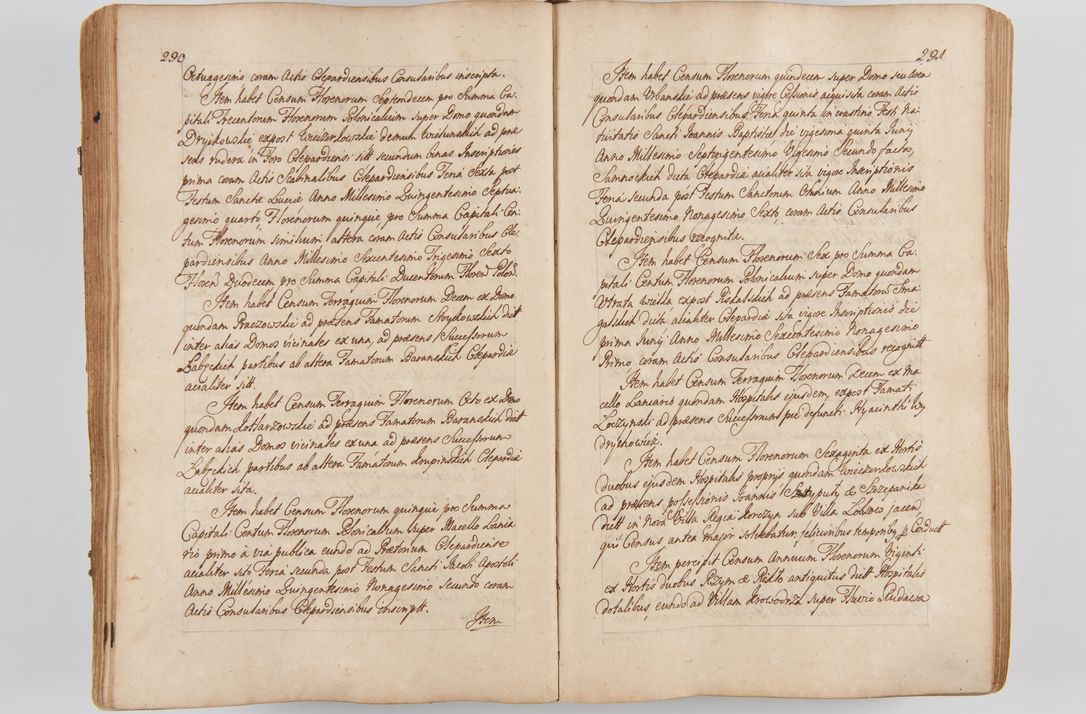 290
Octuagesimo coram Actis Clepardiensibus Consularibus inscripta.
Item habet Censum Florenorum Septemdecem pro Summa Ca-
pitali Trecentorum Florenorum Polonicalium Super Domo quondam
ex post demum ad præ
sens rudera in Foro Clepardiensi sitt secundum binas Inscriptiones
prima coram Actis Scabinalibus Clepardiensibus Feria Sexta post
Festum Sanctæ Luciæ Anno Millesimo Quingentesimo Septua-
gesimo quarto, Florenorum quinque, pro Summa Capitali Cen-
tum Florenorum similium, altera coram Actis Consularibus Cle-
pardiensibus Anno Millesimo Sexcentesimo Trigesimo Sexto
Floren Duodecem pro Summa Capitali Ducentorum Floren Polon.
Item habet Censum Terragium Florenorum Decem ex Domo
quondam Raczowskie ad præsens Famatorum ditt
inter alias Domos vicinales ex una, ad præsens Successorum
Babeckich partibus ab altera Famatorum Baranskich Clepardiæ
acialiter sitt.
Item habet Censum Terragium Florenorum Octo ex Domo
quondam ad præsens Famatorum Baranskich ditt
inter alias Domos vicinales ex una ad præsens Successorum
Babeckich partibus ab altera Famatorum Krupinskich Clepardiæ
acialiter sita.
Item habet Censum Florenorum quinque pro Summa
Capitali Centum Florenorum Polonicalium Super Macello Lania
rio primo à via publica eundo ad Prætorium Clepardiense
acialiter sito Feria Secunda post Festum Sancti Apostoli
Anno Millesimo Quingentesimo Nonagesimo Secundo coram
Actis Consularibus Clepardiensibus inscriptt.
Item
291
Item habet Censum Florenorum quindecem super Domo seu Area
quondam Urbanskie ad præsens vigore Cessionis acquisita coram Actis
Consularibus Clepardiensibus Feria quinta in crastino Festi Na-
tivitatis Sancti Joannis Baptistæ die vigesima quinta Junij
Anno Millesimo Septengentesimo Vigesimo Secundo factæ,
dicta Clepardiæ acialiter sita vigore Inscriptionis
Feria secunda post Festum Sanctorum Omnium Anno Millesimo
Quingentesimo Nonagesimo Sexto, coram Actis Consularibus
Clepardiensibus recognitæ.
Item habet Censum Florenorum Sex pro Summa Ca-
pitali Centum Florenorum Polonicalium super Domo quondam
ex post ad præsens Famatorum Sma
galskich dicta acialiter Clepardiæ sita vigore Inscriptionis die
prima Junij Anno Millesimo Sexcentesimo Nonagesimo
Primo, coram Actis Consularibus Clepardiensibus recognitt
Item habet Censum Terragium Florenorum Decem ex Ma
cello Laniario quondam Hospitalis ejusdem, expost Famati
Loczynski ad præsens Successorum pie defuncti Hyacinthi Wy
drychowicz.
Item habet Censum Florenorum Sexaginta ex Hortis
duobus ejusdem Hospitalis proprijs quondam
ad præsens possessionis Joannis & Szczepanika
ditt in Nova Villa Regia sub Villa Lobzow jacen
qui Census antea major solvebatur, felicioribus temporibus, p Conductt
Item percipit Censum Annuum Florenorum Viginti
ex Hortis duobus Rzym & Piekło antiquitus ditt Hospitalis
dotalibus, eundo ad Villam Krowodrza super Fluvio Rudawa